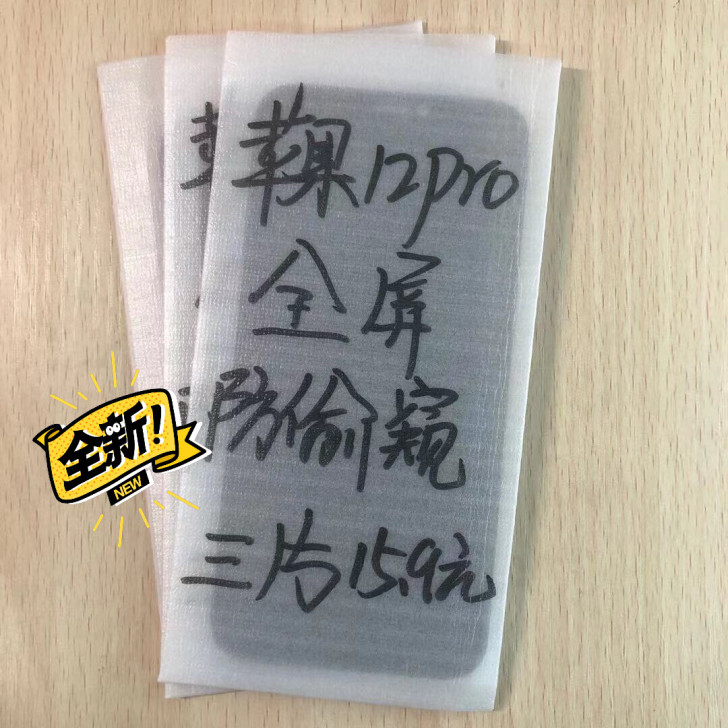 苹果12pro
全屏
防偷窥
三片15.9元
全新!
NEW